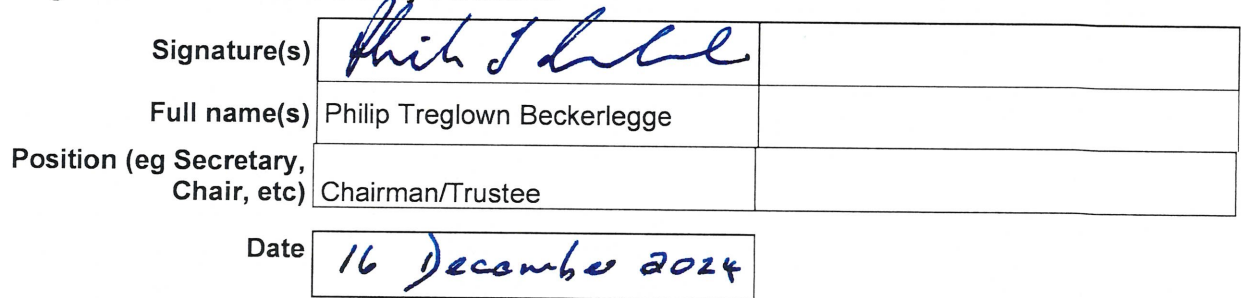 Signature(s)
Full name(s) Philip Treglown Beckerlegge
Position (eg Secretary,
Chair, etc) Chairman/Trustee
Date 16 December 2024